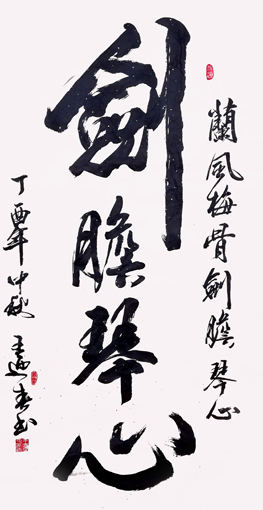 蘭風梅骨劍膽琴心
劍膽琴心
丁酉年中秋
春書